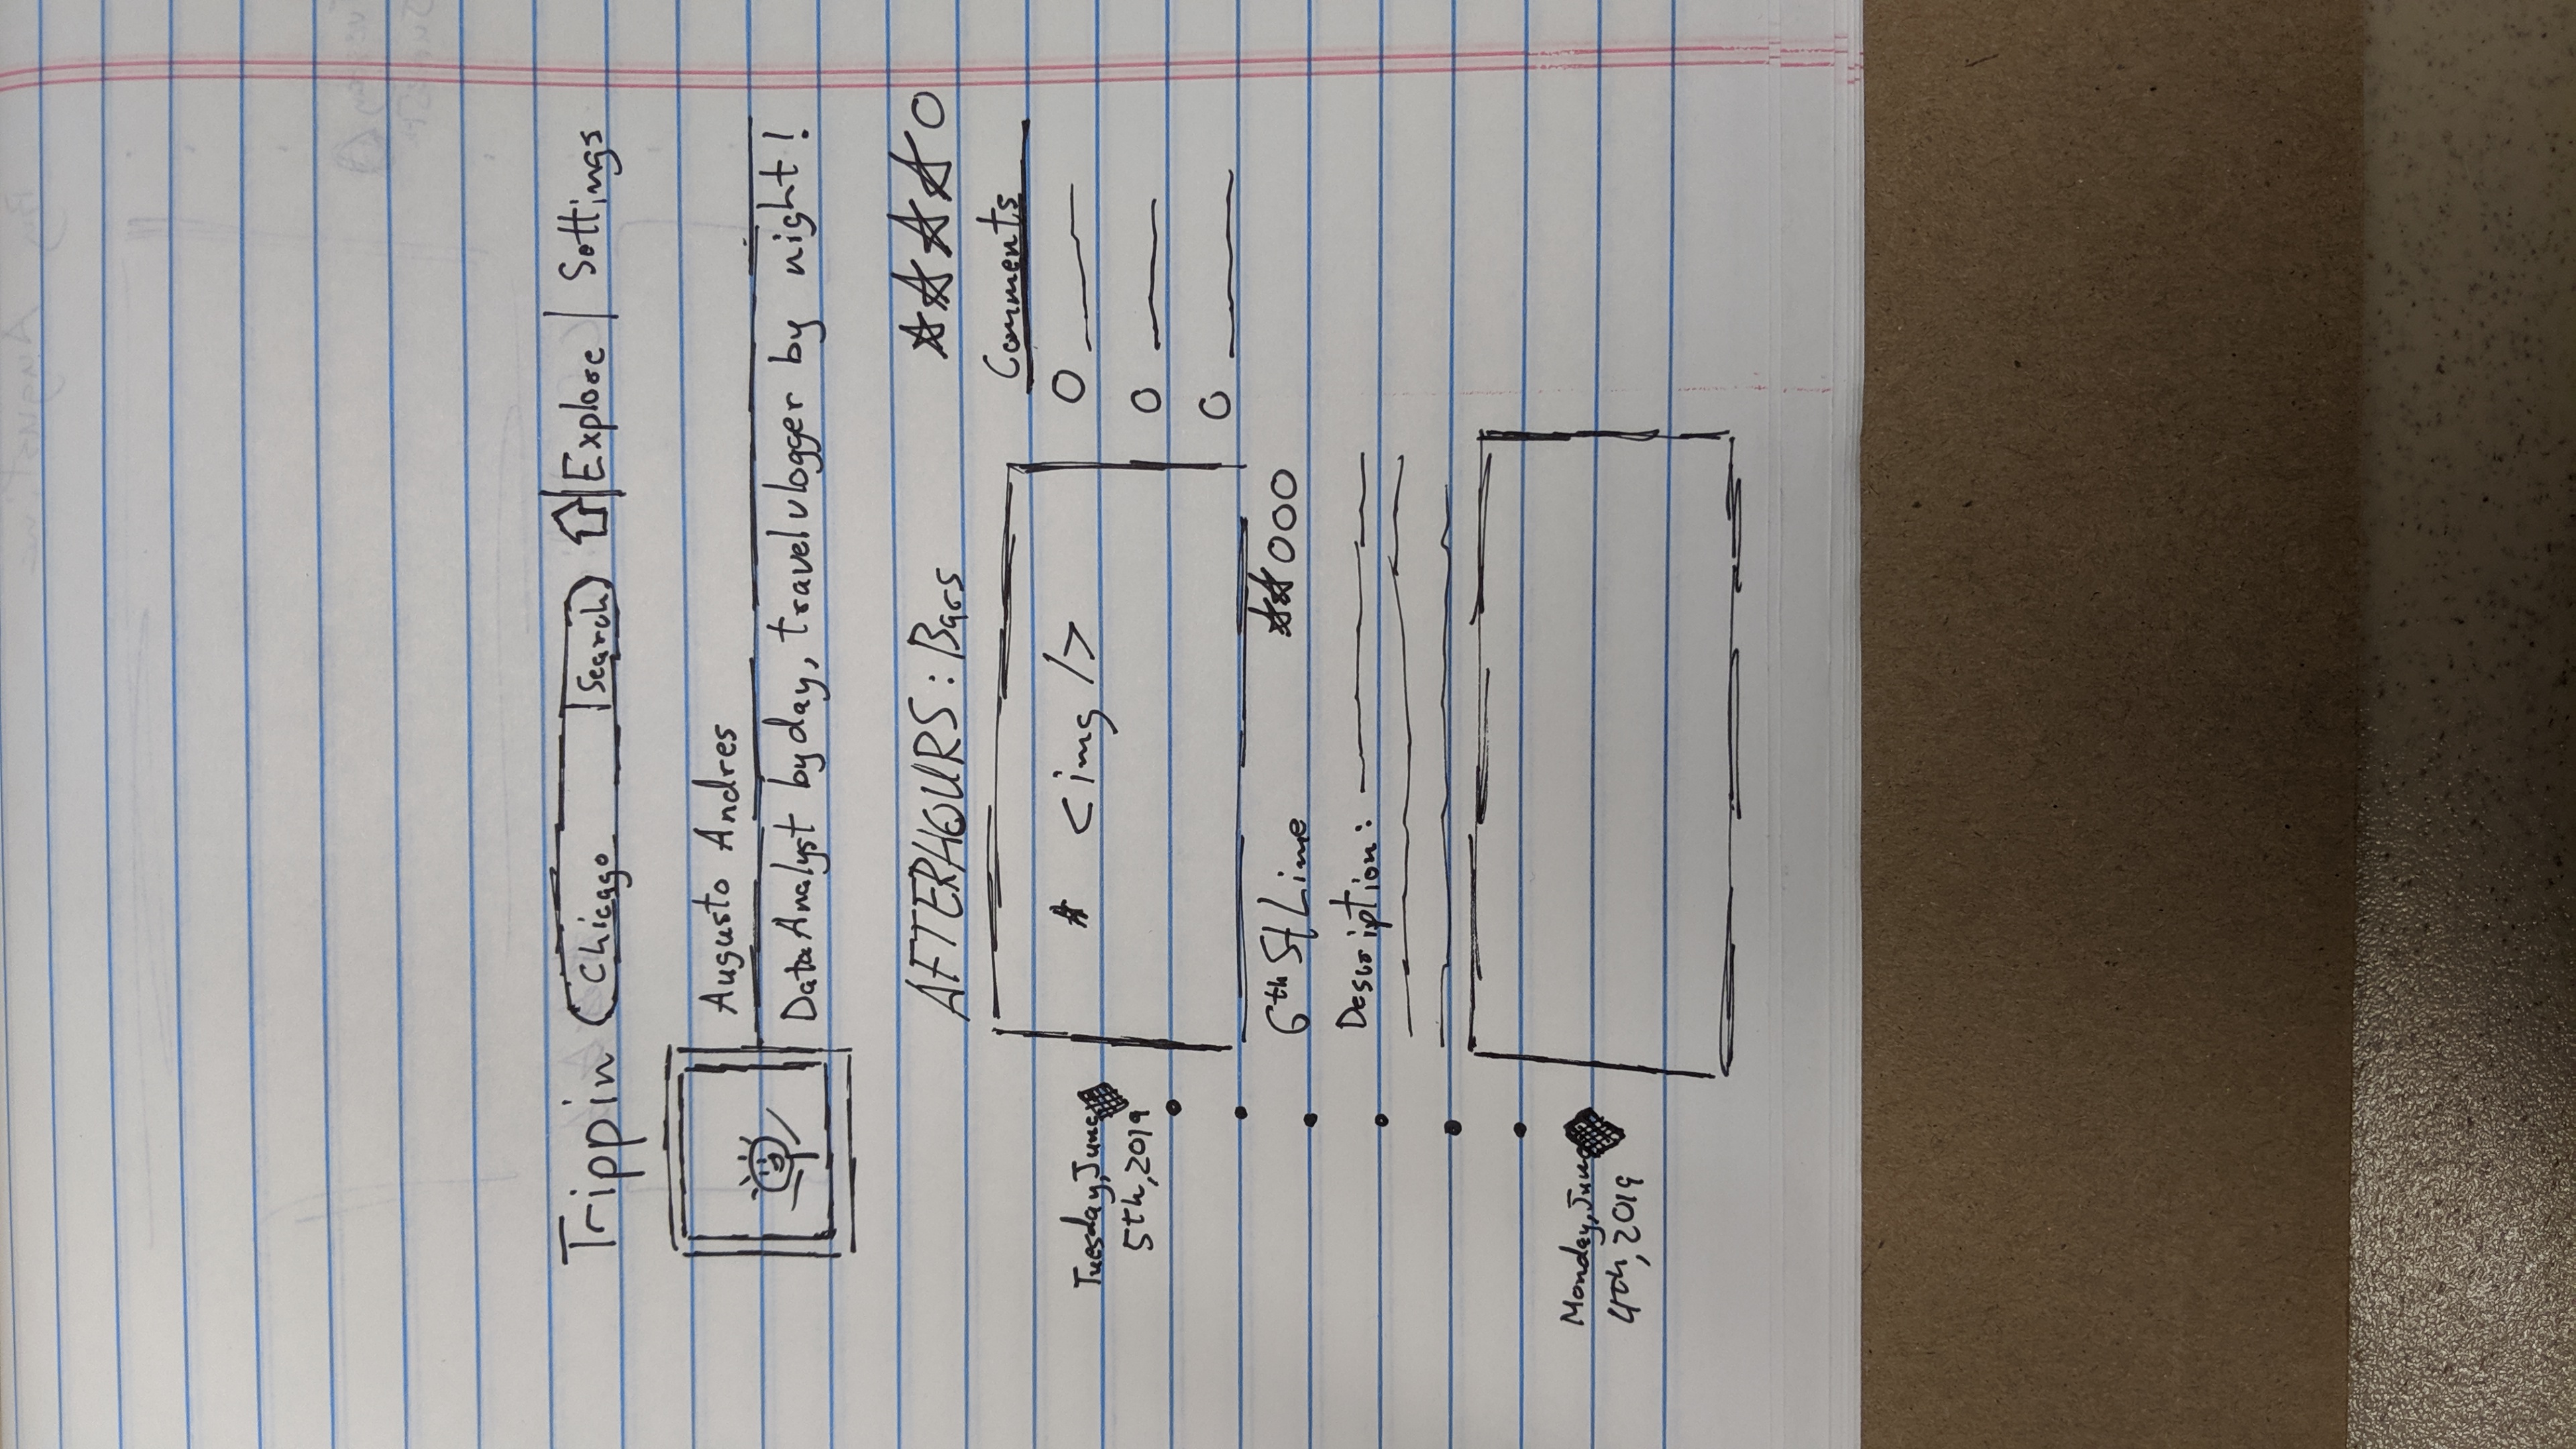 Trippin Chicago Search Explore Settings
Augusto Andres
Data Analyst by day, travel vlogger by night!
AFTERHOURS: Bars
Comments
<img />
Tuesday, June
5th, 2019
6th St Lime
Description:
Monday, June
4th, 2019